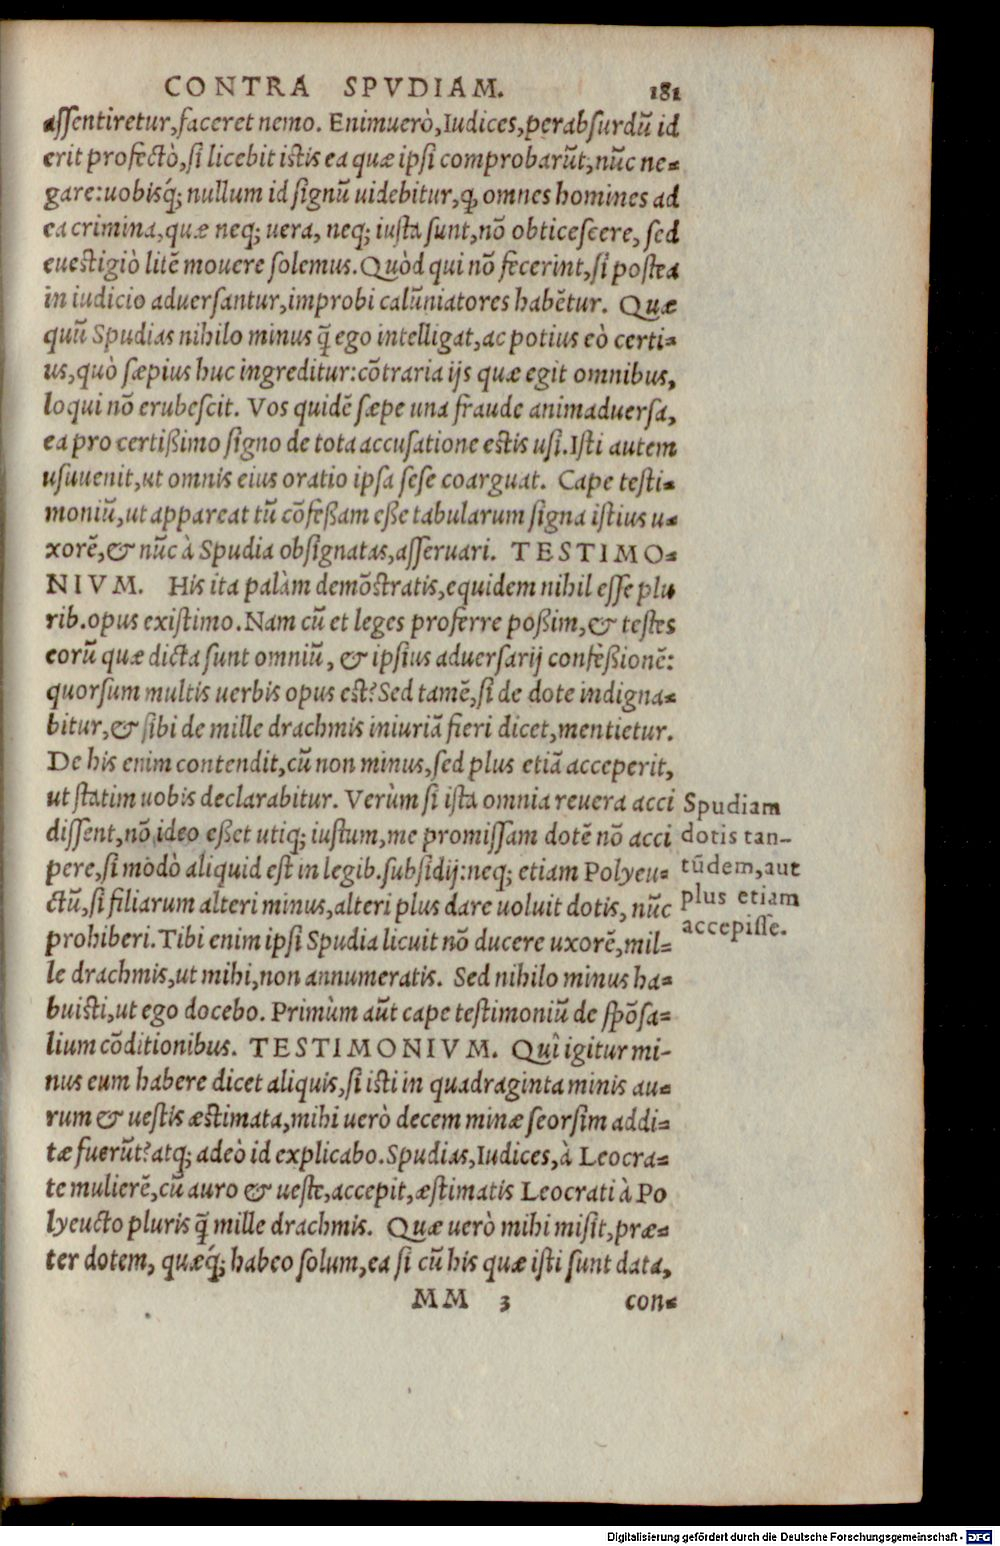 CONTRA SPVDIAM. 181
assentiretur, faceret nemo. Enimuerò, Iudices, perabsurdũ id
erit profectò, si licebit istis ea quæ ipsi comprobarũt, nũc ne-
gare: uobisq́; nullum id signũ uidebitur, ꝙ omnes homines ad
ea crimina, quæ neq; uera, neq; iusta sunt, nõ obticescere, sed
euestigiò litẽ mouere solemus. Quòd qui nõ fecerint, si postea
in iudicio aduersantur, improbi calũniatores habẽtur. Quæ
quũ Spudias nihilo minus q̃ ego intelligat, ac potius eò certi-
us, quò sæpius huc ingreditur: cõtraria ijs quæ egit omnibus,
loqui nõ erubescit. Vos quidẽ sæpe una fraude animaduersa,
ea pro certißimo signo de tota accusatione estis usi. Isti autem
usuuenit, ut omnis eius oratio ipsa sese coarguat. Cape testi-
moniũ, ut appareat tũ cõfeßam eße tabularum signa istius u-
xorẽ, & nũc à Spudia obsignatas, asseruari. TESTIMO-
NIVM. His ita palàm demõstratis, equidem nihil esse plu
rib. opus existimo. Nam cũ et leges proferre poßim, & testes
eorũ quæ dicta sunt omniũ, & ipsius aduersarij confeßionẽ:
quorsum multis uerbis opus est? Sed tamẽ, si de dote indigna-
bitur, & sibi de mille drachmis iniuriã fieri dicet, mentietur.
De his enim contendit, cũ non minus, sed plus etiã acceperit,
ut statim uobis declarabitur. Verùm si ista omnia reuera acci
dissent, nõ ideo eßet utiq; iustum, me promissam dotẽ nõ acci
pere, si modò aliquid est in legib. subsidij: neq; etiam Polyeu-
ctũ, si filiarum alteri minus, alteri plus dare uoluit dotis, nũc
prohiberi. Tibi enim ipsi Spudia licuit nõ ducere uxorẽ, mil-
le drachmis, ut mihi, non annumeratis. Sed nihilo minus ha-
buisti, ut ego docebo. Primùm aũt cape testimoniũ de spõsa-
lium cõditionibus. TESTIMONIVM. Quì igitur mi-
nus eum habere dicet aliquis, si isti in quadraginta minis au-
rum & uestis æstimata, mihi uerò decem minæ seorsim addi-
tæ fuerũt? atq; adeò id explicabo. Spudias, Iudices, à Leocra-
te mulierẽ, cũ auro & ueste, accepit, æstimatis Leocrati à Po
lyeucto pluris q̃ mille drachmis. Quæ uerò mihi misit, præ-
ter dotem, quæq́; habeo solum, ea si cũ his quæ isti sunt data,
MM 3 con-
Spudiam
dotis tan-
tũdem, aut
plus etiam
accepisse.
Digitalisierung gefördert durch die Deutsche Forschungsgemeinschaft - DFG